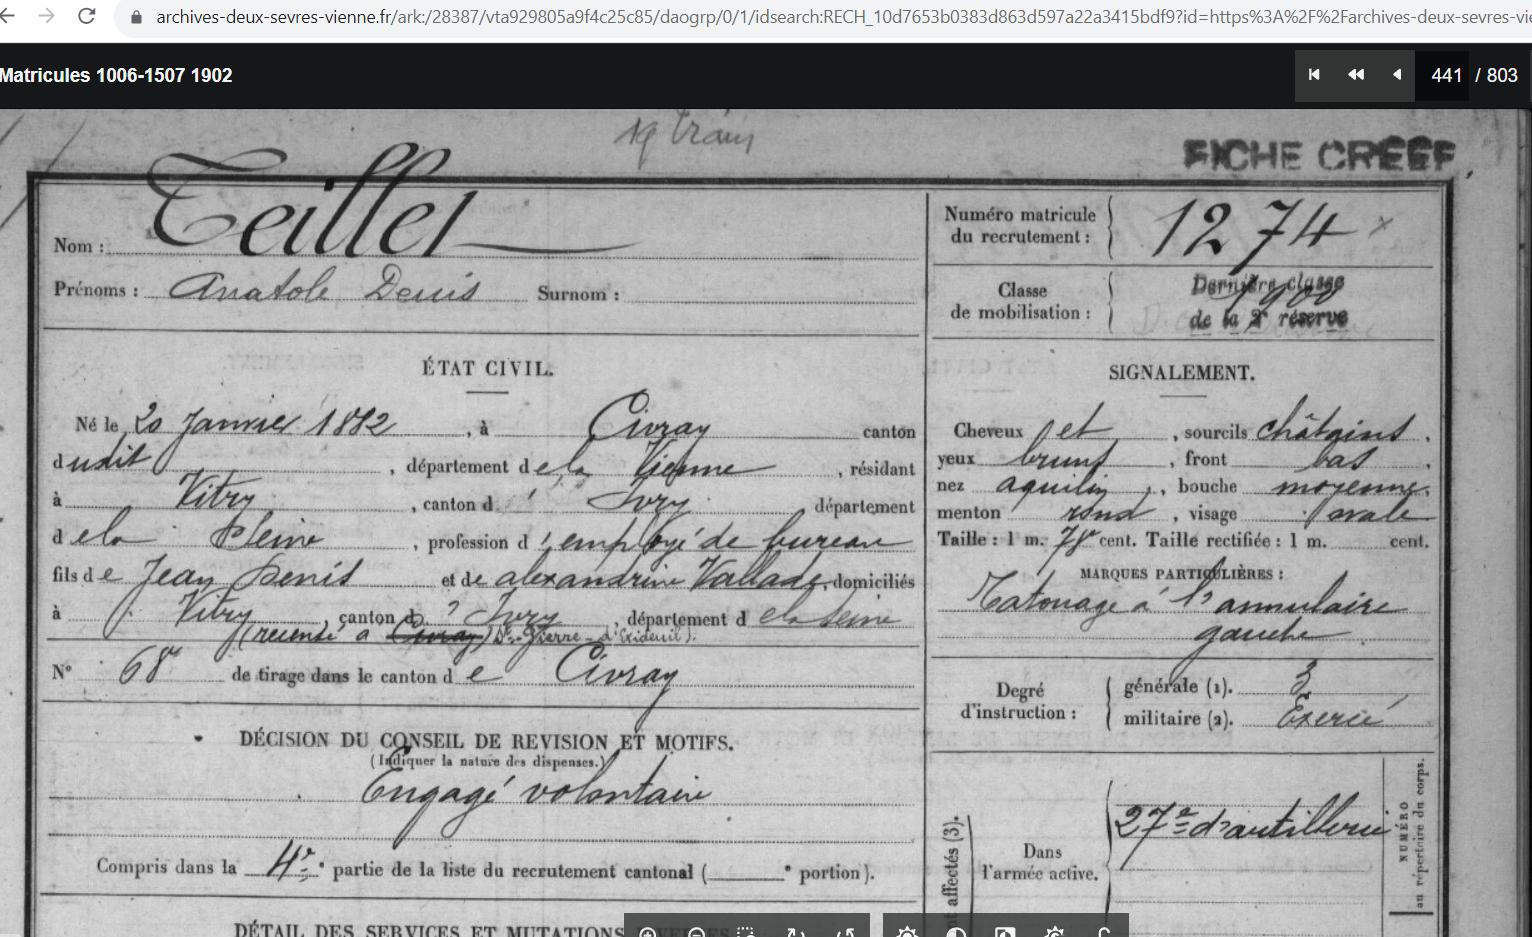 archives-deux-sevres-vienne.fr/ark:/28387/vta929805a9f4c25c85/daogrp/0/1/idsearch:RECH_10d7653b0383d863d597a22a3415bdf9?id=https%3A%2F%2Farchives-deux-sevres-vie
Matricules 1006-1507 1902
441 / 803
19 train
FICHE CRÉÉE
Nom : Teillet
Prénoms : Anatole Denis Surnom :
Numéro matricule du recrutement : 1274
Classe de mobilisation : 1900
Dernière classe
de la 2e réserve
ÉTAT CIVIL.
Né le 20 Janvier 1882, à Civray canton
dudit, département de la Vienne, résidant
à Vitry, canton d' Ivry département
de la Seine, profession d'employé de bureau
fils de Jean Denis et de Alexandrine Vallade domiciliés
à Vitry, canton d' Ivry, département de la Seine
(recensé à Civray) St-Pierre-d'Exideuil).
N° 68 de tirage dans le canton de Civray
SIGNALEMENT.
Cheveux et, sourcils châtains.
yeux bruns, front bas.
nez aquilin, bouche moyenne.
menton rond, visage ovale
Taille : 1 m. 78 cent. Taille rectifiée : 1 m. cent.
MARQUES PARTICULIÈRES :
Tatouage à l'annulaire
gauche
Degré d'instruction :
générale (1). 3
militaire (2). Exercé
DÉCISION DU CONSEIL DE REVISION ET MOTIFS.
(Indiquer la nature des dispenses.)
Engagé volontaire
Compris dans la 4e partie de la liste du recrutement cantonal ( e portion).
DÉTAIL DES SERVICES ET MUTATIONS
affectés (3).
Dans l'armée active.
27e d'artillerie
NUMÉRO
au répertoire du corps.